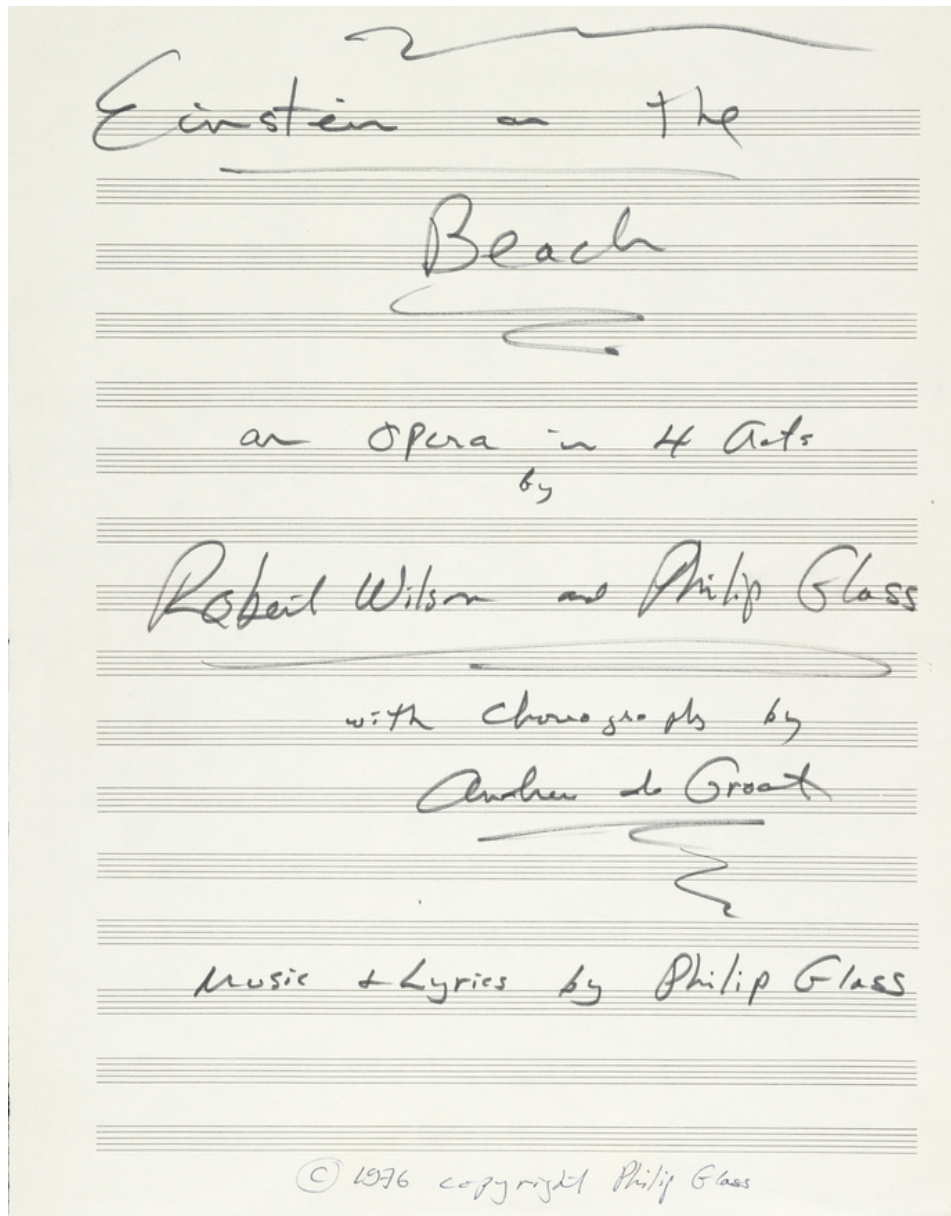 Einstein on The
Beach
an Opera in 4 Acts
by
Robert Wilson and Philip Glass
with Choreography by
Andrew de Groat
Music + Lyrics by Philip Glass
© 1976 copyright Philip Glass